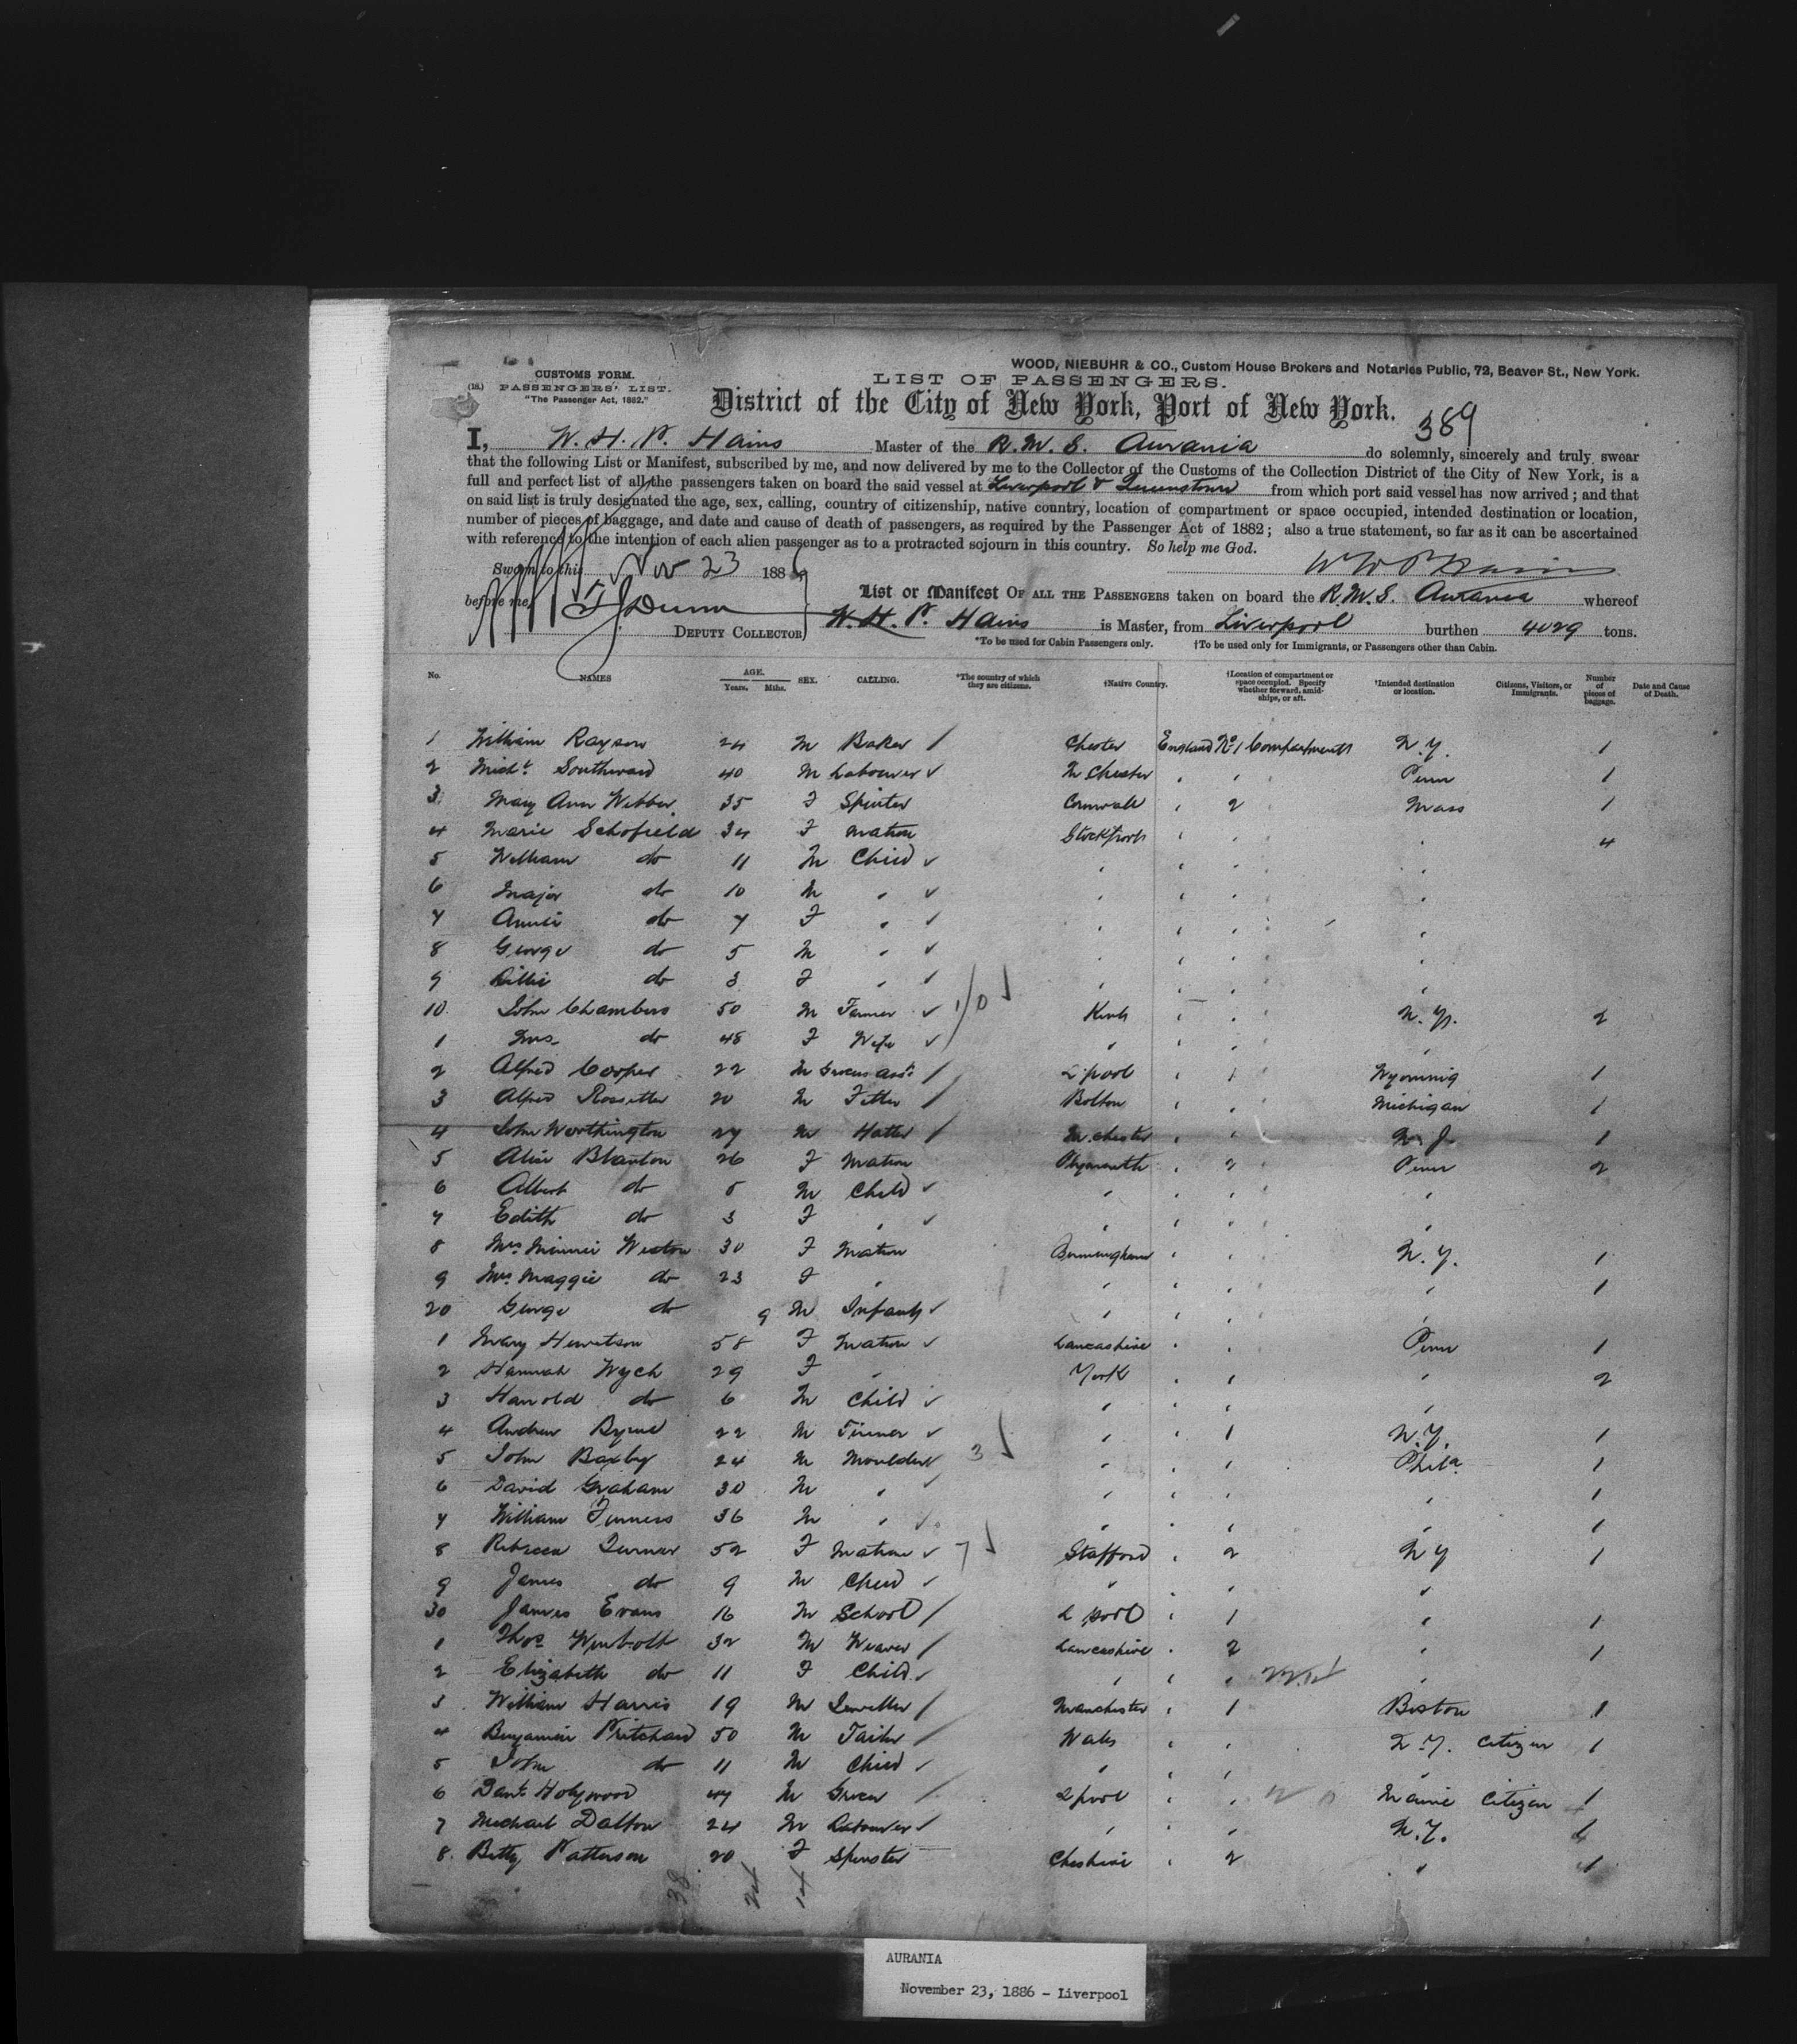 WOOD, NIEBUHR & CO., Custom House Brokers and Notaries Public, 72, Beaver St., New York.
CUSTOMS FORM.
(18.) PASSENGERS' LIST.
"The Passenger Act, 1882."
LIST OF PASSENGERS.
District of the City of New York, Port of New York.
389
I, W. H. P. Hains Master of the R.M.S. Aurania do solemnly, sincerely and truly swear
that the following List or Manifest, subscribed by me, and now delivered by me to the Collector of the Customs of the Collection District of the City of New York, is a
full and perfect list of all the passengers taken on board the said vessel at Liverpool & Queenstown from which port said vessel has now arrived; and that
on said list is truly designated the age, sex, calling, country of citizenship, native country, location of compartment or space occupied, intended destination or location,
number of pieces of baggage, and date and cause of death of passengers, as required by the Passenger Act of 1882; also a true statement, so far as it can be ascertained
with reference to the intention of each alien passenger as to a protracted sojourn in this country. So help me God.
Sworn to this Nov 23 1886
W H P Hains
before me, Dunn
DEPUTY COLLECTOR
List or Manifest OF ALL THE PASSENGERS taken on board the R.M.S. Aurania whereof
W. H. P. Hains is Master, from Liverpool burthen 4029 tons.
*To be used for Cabin Passengers only. †To be used only for Immigrants, or Passengers other than Cabin.
No. NAMES AGE. Years. Mths. SEX. CALLING. *The country of which they are citizens. †Native Country. †Location of compartment or space occupied. Specify whether forward, amidships, or aft. †Intended destination or location. Citizens, Visitors, or Immigrants. Number of pieces of baggage. Date and Cause of Death.
1 William Rayson 24 M Baker / Chester England No 1 Compartment N.Y. 1
2 Michl Southward 40 M Labourer ✓ M Chester " " Penn 1
3 Mary Ann Webber 35 F Spinster Cornwall " 2 " Mass 1
4 Marie Schofield 34 F Matron Stockport " " " 4
5 William do 11 M Child ✓ " " " "
6 Major do 10 M " ✓ " " " "
7 Annie do 7 F " ✓ " " " "
8 George do 5 M " ✓ " " " "
9 Lillie do 3 F " ✓ " " " "
10 John Chambers 50 M Farmer ✓ Kent " " N.Y. 2
1 Mrs do 48 F Wife ✓ " " " "
2 Alfred Cooper 22 M Grocers Asst / L'pool " 1 Wyoming 1
3 Alfred Rossetter 20 M Fitter / Bolton " " Michigan 1
4 John Worthington 27 M Hatter / M.chester " " N.J. 1
5 Alice Blanton 26 F Matron Plymouth " 2 " Penn 2
6 Albert do 5 M Child ✓ " " " "
7 Edith do 3 F " ✓ " " " "
8 Mrs Minnie Weston 30 F Matron Birmingham " " " N.Y. 1
9 Mrs Maggie do 23 F " " " " " 1
20 George do 9 M Infant ✓ " " " "
1 Mary Hewetson 58 F Matron ✓ Lancashire " " Penn 1
2 Hannah Wych 29 F " York " " " 2
3 Harrold do 6 M Child ✓ " " " "
4 Andrew Byrne 22 M ✓ " " 1 N.Y. 1
5 John Baxby 24 M Moulder ✓ 3 " " " Phila 1
6 David Graham 30 M " ✓ " " " " 1
7 William Furness 36 M " ✓ " " " " 1
8 Rebecca Turner 52 F Matron ✓ 7 Stafford " 2 N Y 1
9 James do 9 M Child ✓ " " " "
30 James Evans 16 M School / L pool " 1 " 1
1 Thos 32 M Weaver / Lancashire " 2 " 1
2 Elizabeth do 11 F Child ✓ " " " "
3 William Harris 19 M Jeweller / Manchester " 1 Boston 1
4 Benjamin Pritchard 50 M Tailor / Wales " " N.Y. Citizen 1
5 John do 11 M Child ✓ " " " "
6 Danl Holywood 47 M Grocer / L pool " " Maine Citizen 1
7 Michael Dalton 24 M Labourer ✓ " " N.Y. 1
8 Betty Patterson 20 F Spinster Cheshire " 2 " 1
38 24 14
AURANIA
November 23, 1886 - Liverpool